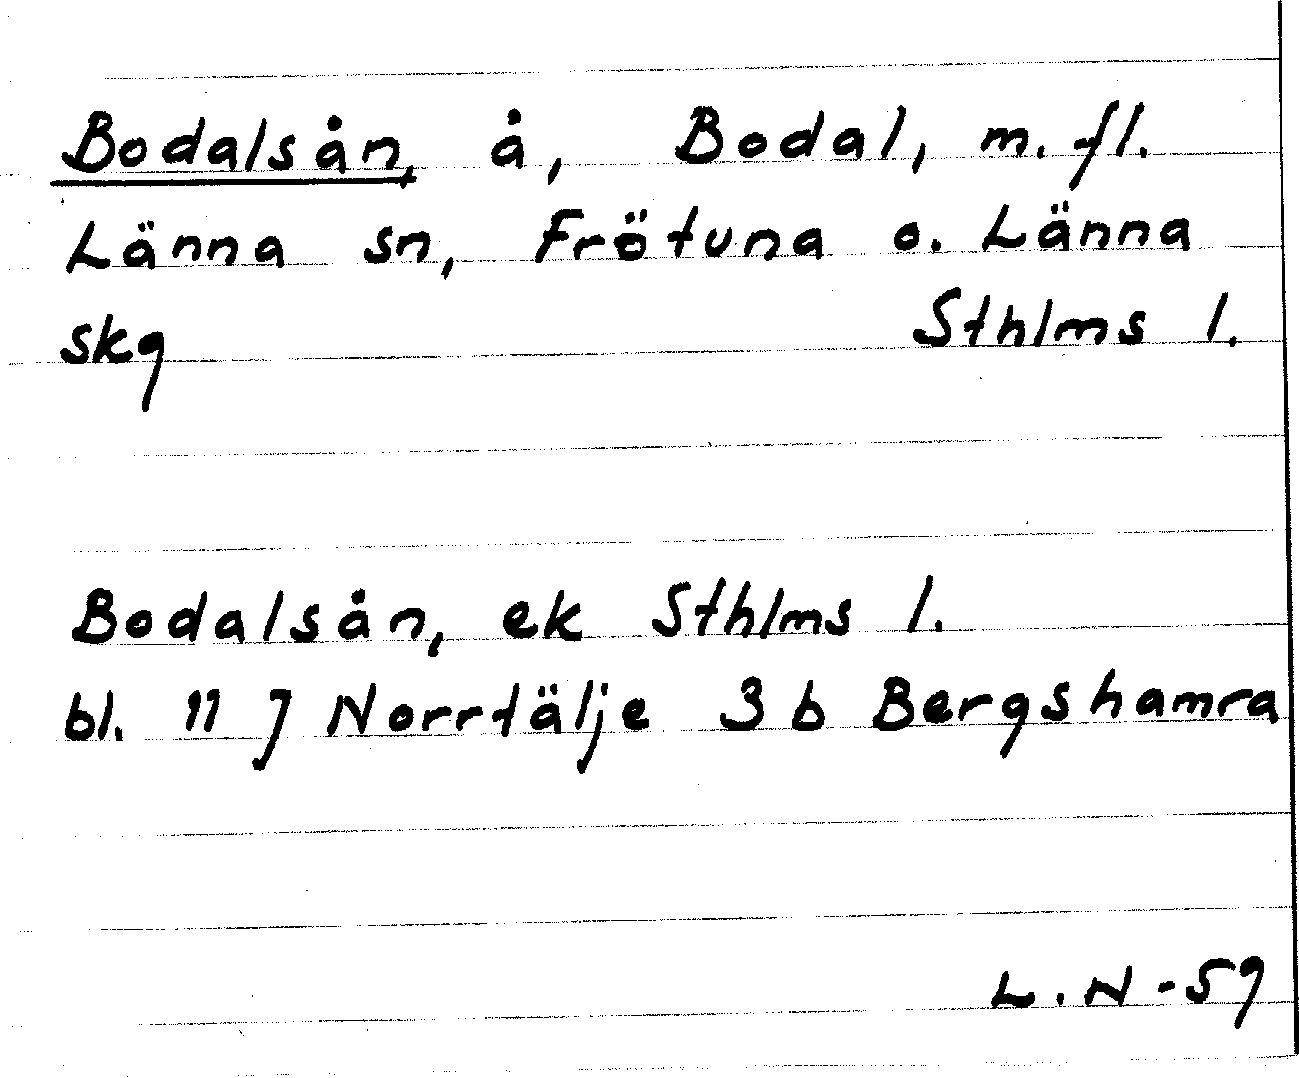 Bodalsån, å, Bodal, m. fl.
Länna sn, Frötuna o. Länna
skg Sthlms l.
Bodalsån, ek Sthlms l.
bl. 11 J Norrtälje 3 b Bergshamra
L. N - 59